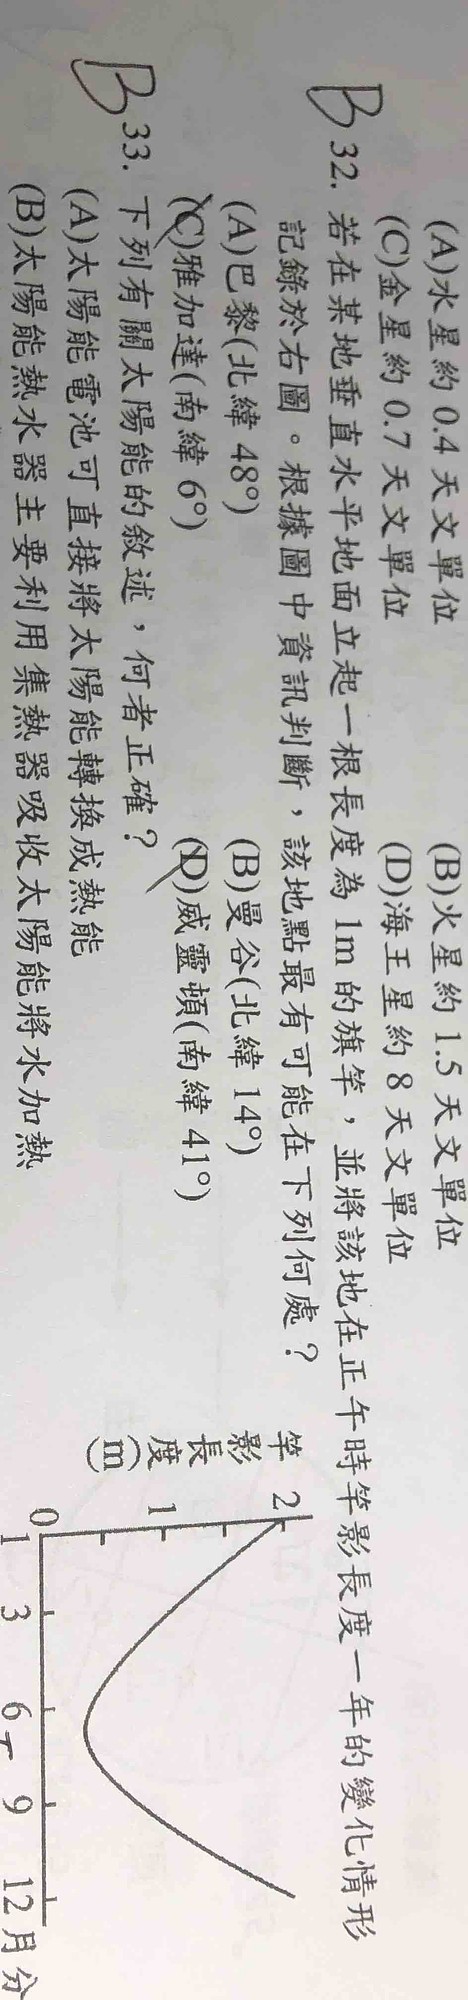 (A)水星約 0.4 天文單位 (B)火星約 1.5 天文單位
(C)金星約 0.7 天文單位 (D)海王星約 8 天文單位
B 32. 若在某地垂直水平地面立起一根長度為 1m 的旗竿，並將該地在正午時竿影長度一年的變化情形
記錄於右圖。根據圖中資訊判斷，該地點最有可能在下列何處？
(A)巴黎(北緯 48°) (B)曼谷(北緯 14°)
(C)雅加達(南緯 6°) (D)威靈頓(南緯 41°)
B 33. 下列有關太陽能的敘述，何者正確？
(A)太陽能電池可直接將太陽能轉換成熱能
(B)太陽能熱水器主要利用集熱器吸收太陽能將水加熱
竿影長度(m)
2
1
0
1 3 6 9 12 月份